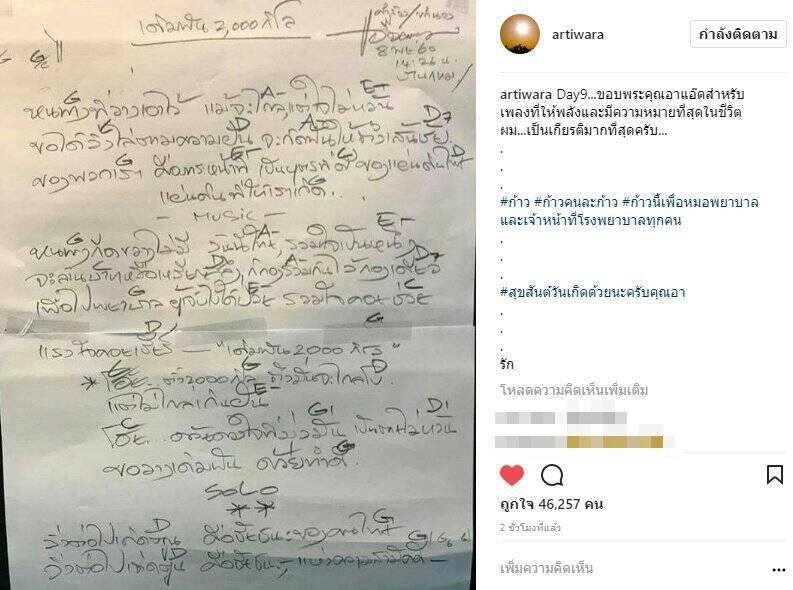 เดิมพัน 2,000 กิโล
8 พย 60
14:26 น.
G
หนทางที่วางเอาไว้ แม้จะไกลแต่ใจไม่หวั่น
ขอได้วิ่งไล่ตามความฝัน จะกัดฟันให้ถึงเส้นชัย
ของพวกเรา คือภาระหน้าที่ เป็นบุตรที่ดีของแผ่นดินไทย
แผ่นดินที่ให้เราเกิด..
- MUSIC -
รวมใจเป็นหนึ่ง
เพื่อโรงพยาบาล ผู้เจ็บไข้ได้ป่วย รวมใจคอยช่วย
แรงใจคอยเชียร์ — "เดิมพัน 2,000 กิโล"
2,000 กิโล ถึงมันจะไกลโข
แต่ไม่ไกลเกินฝัน
ด้วยดวงใจที่มุ่งมั่น
ขอวางเดิมพัน ด้วยทำดี
SOLO
* *
วิ่งต่อไปเถิดตูน คือชัยชนะของคนไทย
วิ่งต่อไปเถิดตูน คือชัยชนะ
artiwara
กำลังติดตาม
artiwara Day9...ขอบพระคุณอาแอ๊ดสำหรับ
เพลงที่ให้พลังและมีความหมายที่สุดในชีวิต
ผม...เป็นเกียรติมากที่สุดครับ...
.
.
.
#ก้าว #ก้าวคนละก้าว #ก้าวนี้เพื่อหมอพยาบาล
และเจ้าหน้าที่โรงพยาบาลทุกคน
.
.
.
#สุขสันต์วันเกิดด้วยนะครับคุณอา
.
.
.
รัก
โหลดความคิดเห็นเพิ่มเติม
ถูกใจ 46,257 คน
2 ชั่วโมงที่แล้ว
เพิ่มความคิดเห็น